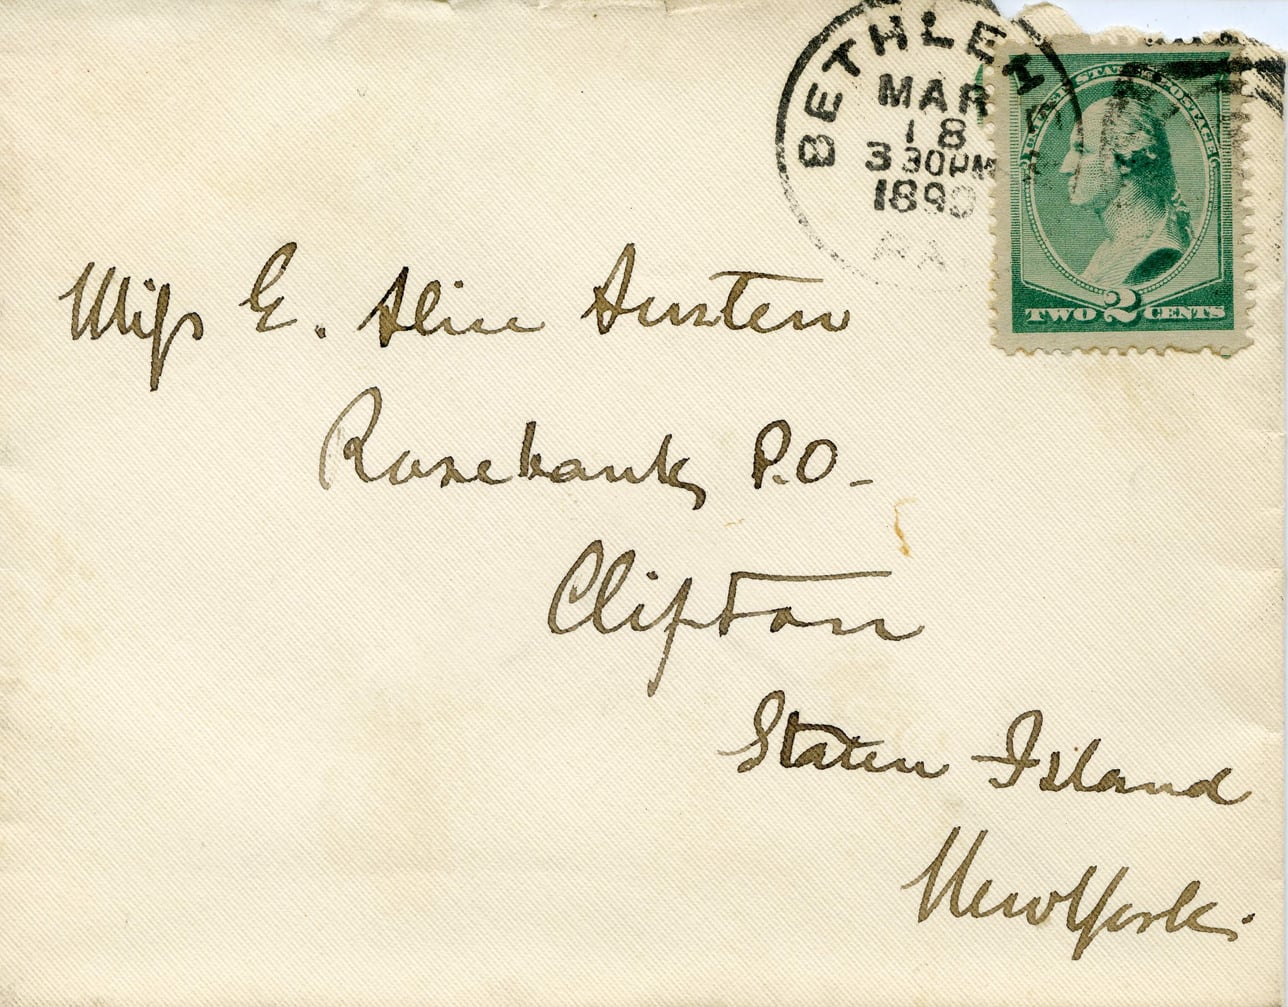 BETHLEHEM
MAR
18
3 30 PM
1890
PA.
UNITED STATES POSTAGE
TWO 2 CENTS
Miss E. Alice Austen
Rosebank P.O.
Clifton
Staten Island
New York.